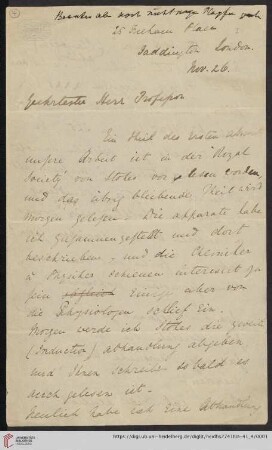 25 Pickham Place
Paddington London.
Nov. 26.
Geehrtester Herr Professor
Ein Theil des ersten
unsere Arbeit ist in der Royal
Society von Stokes vorgelesen worden,
und das übrig bleibende Theil wird
Morgen gelesen. Die apparate habe
ich zusammengestellt und dort
beschrieben und die Chemiker
u Physiker schienen interessirt zu
sein einige aber von
die Physiologen schlief ein.
Morgen werde ich Stokes die zweite
(Induction) abhandlung abgeben
und Ihnen schreiben sobald es
auch gelesen ist.
Neulich habe ich eine Abhandlung